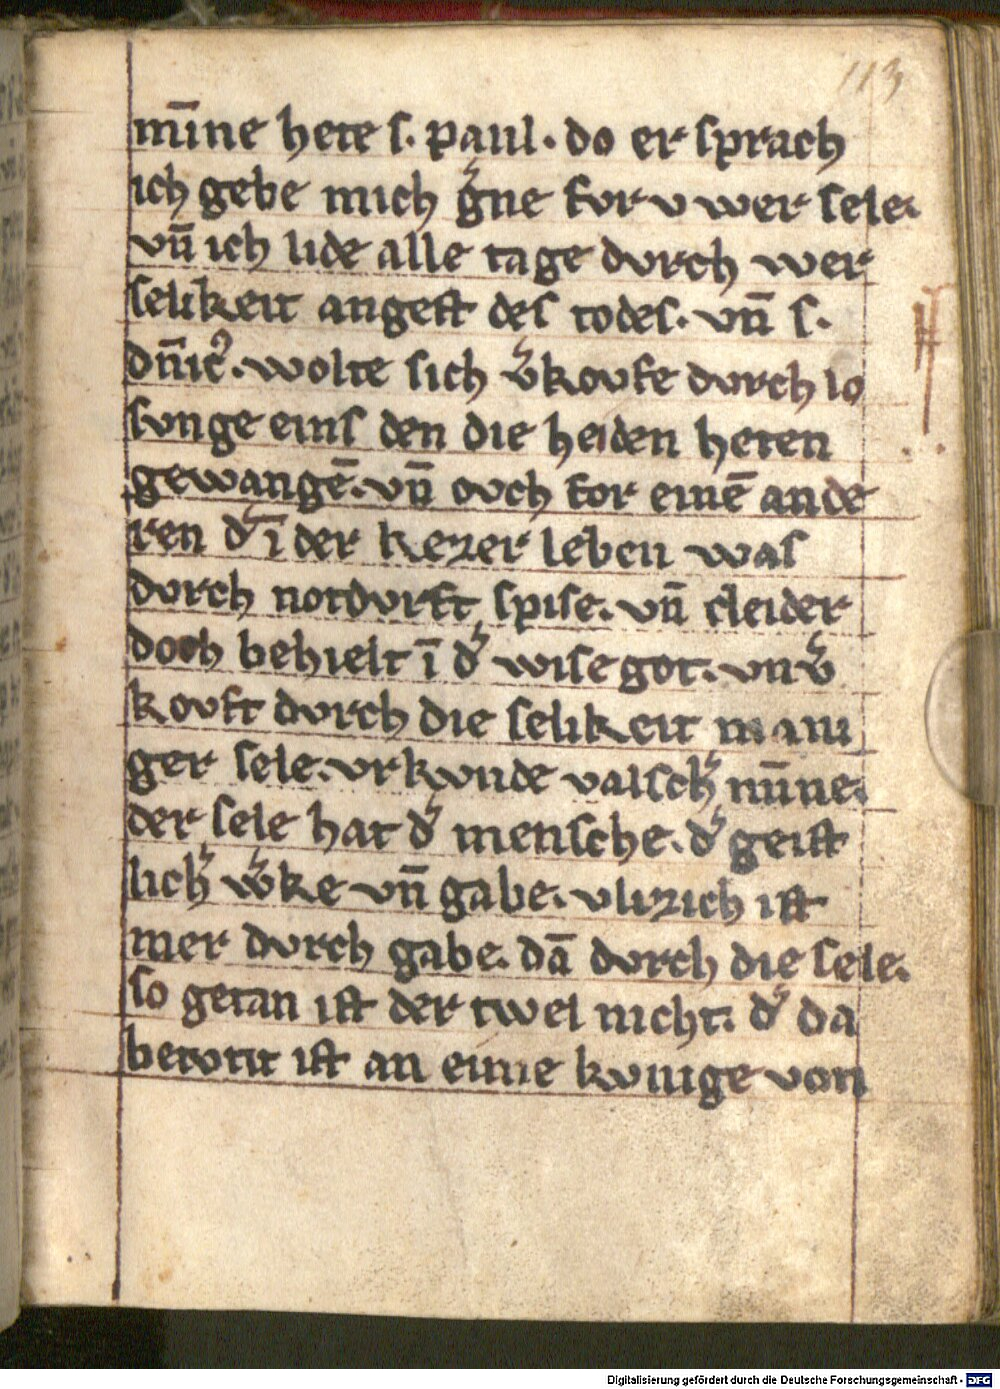 113
mīne hete s. paul. do er sprach
ich gebe mich g͛ne for v wer sele.
vn̄ ich lide alle tage dvrch wer
selikeit angest des todes. vn̄ s.
dn̄ic᷒. wolte sich v͛kovfe dvrch lo
svnge eins den die heiden heten
gewangē. vn̄ ovch for einē ande
ren d͛ ī der kezer leben was
dvrch notdvrft spise. vn̄ cleider
doch behielt ī d͛ wise got. vn v͛
kovft dvrch die selikeit mani
ger sele. vrkvnde valsch͛ mīne.
der sele hat d͛ mensche. d͛ geist
lich͛ w͛ke vn̄ gabe. vlizich ist
mer dvrch gabe. dā dvrch die sele.
so getan ist der twel nicht. d͛ da
betovt ist an eime kvnige von
Digitalisierung gefördert durch die Deutsche Forschungsgemeinschaft - DFG